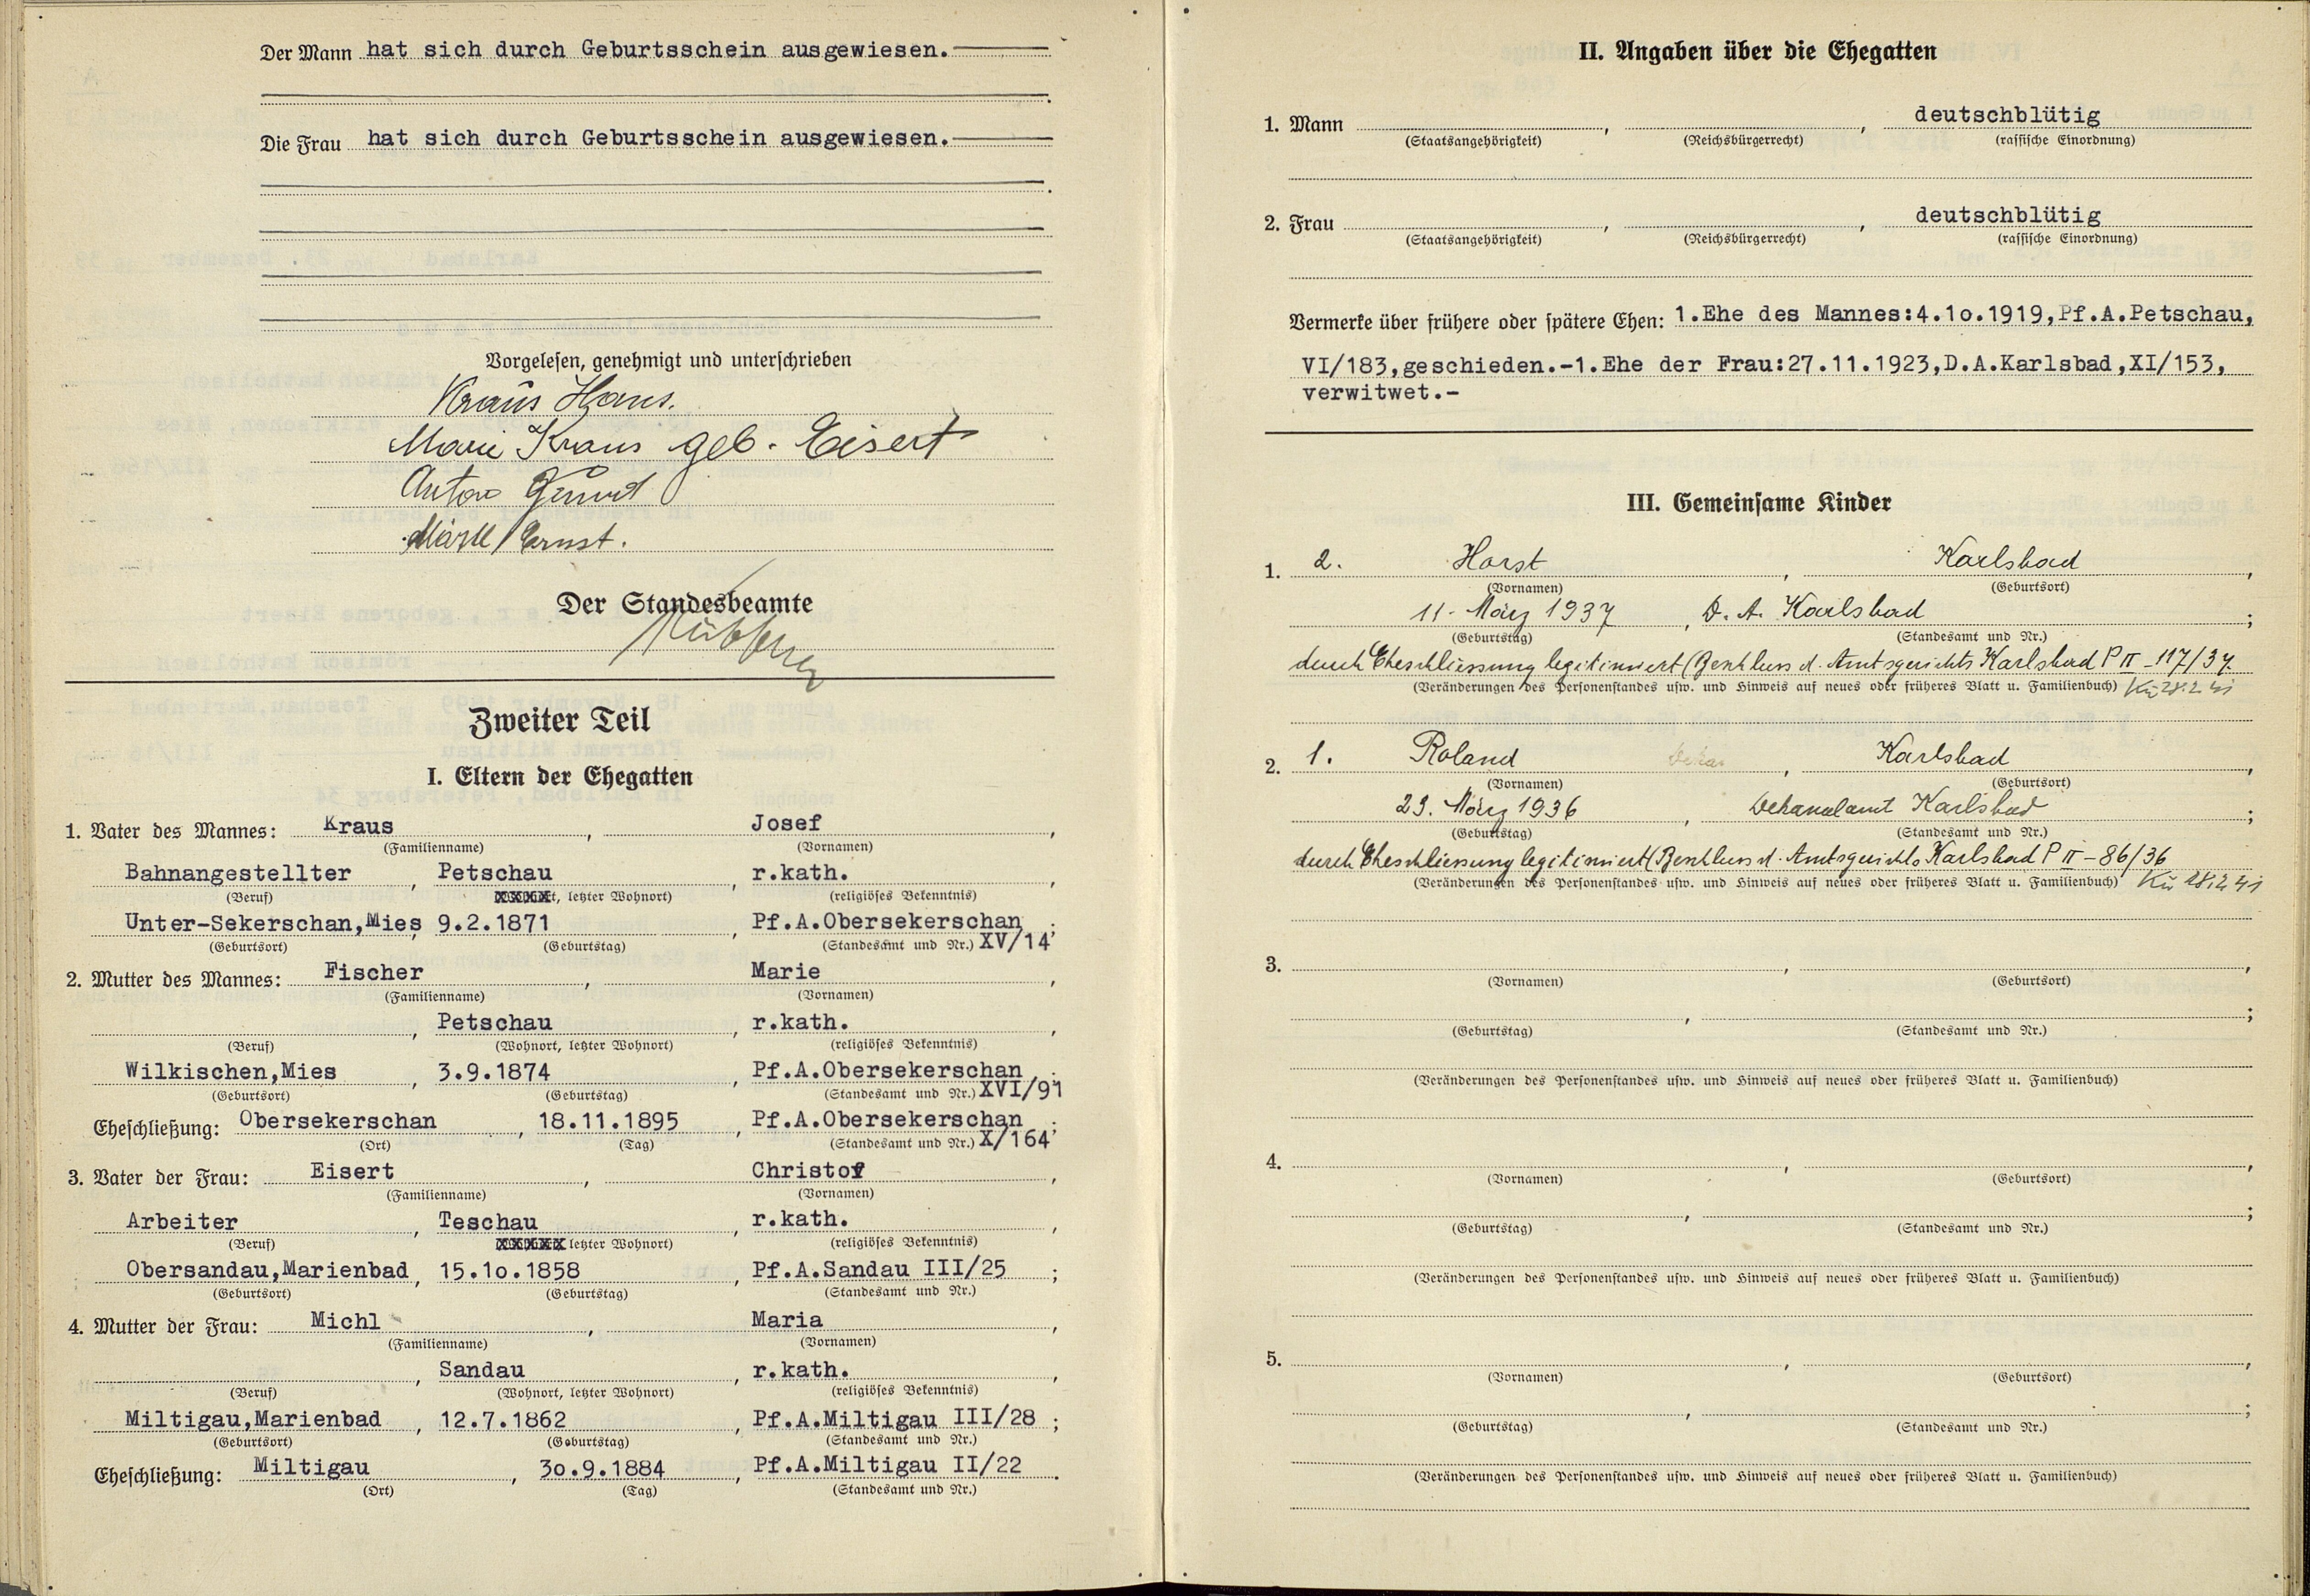 Der Mann hat sich durch Geburtsschein ausgewiesen.
Die Frau hat sich durch Geburtsschein ausgewiesen.
Vorgelesen, genehmigt und unterschrieben
Kraus Hans.
Marie Kraus geb. Eisert
Anton
Ernst.
Der Standesbeamte
Zweiter Teil
I. Eltern der Ehegatten
1. Vater des Mannes: Kraus, Josef,
(Familienname) (Vornamen)
Bahnangestellter, Petschau, r.kath.,
(Beruf) t, letzter Wohnort) (religiöses Bekenntnis)
Unter-Sekerschan,Mies, 9.2.1871, Pf.A.Obersekerschan;
(Geburtsort) (Geburtstag) (Standesamt und Nr.) XV/14
2. Mutter des Mannes: Fischer, Marie,
(Familienname) (Vornamen)
Petschau, r.kath.,
(Beruf) (Wohnort, letzter Wohnort) (religiöses Bekenntnis)
Wilkischen,Mies, 3.9.1874, Pf.A.Obersekerschan;
(Geburtsort) (Geburtstag) (Standesamt und Nr.) XVI/91
Eheschließung: Obersekerschan, 18.11.1895, Pf.A.Obersekerschan;
(Ort) (Tag) (Standesamt und Nr.) X/164
3. Vater der Frau: Eisert, Christof,
(Familienname) (Vornamen)
Arbeiter, Teschau, r.kath.,
(Beruf) letzter Wohnort) (religiöses Bekenntnis)
Obersandau,Marienbad, 15.1o.1858, Pf.A.Sandau III/25;
(Geburtsort) (Geburtstag) (Standesamt und Nr.)
4. Mutter der Frau: Michl, Maria,
(Familienname) (Vornamen)
Sandau, r.kath.,
(Beruf) (Wohnort, letzter Wohnort) (religiöses Bekenntnis)
Miltigau,Marienbad, 12.7.1862, Pf.A.Miltigau III/28;
(Geburtsort) (Geburtstag) (Standesamt und Nr.)
Eheschließung: Miltigau, 3o.9.1884, Pf.A.Miltigau II/22.
(Ort) (Tag) (Standesamt und Nr.)
II. Angaben über die Ehegatten
1. Mann, , deutschblütig
(Staatsangehörigkeit) (Reichsbürgerrecht) (rassische Einordnung)
2. Frau, , deutschblütig
(Staatsangehörigkeit) (Reichsbürgerrecht) (rassische Einordnung)
Vermerke über frühere oder spätere Ehen: 1.Ehe des Mannes:4.1o.1919,Pf.A.Petschau,
VI/183,geschieden.-1.Ehe der Frau:27.11.1923,D.A.Karlsbad,XI/153,
verwitwet.-
III. Gemeinsame Kinder
1. 2. Horst, Karlsbad,
(Vornamen) (Geburtsort)
11. März 1937, D. A. Karlsbad;
(Geburtstag) (Standesamt und Nr.)
durch Eheschliessung legitimiert (Beschluss d. Amtsgerichts Karlsbad P II - 117/37.
(Veränderungen des Personenstandes usw. und Hinweis auf neues oder früheres Blatt u. Familienbuch) Kü 28.2.41
2. 1. Roland, Karlsbad,
(Vornamen) (Geburtsort)
23. März 1936, Dekanalamt Karlsbad;
(Geburtstag) (Standesamt und Nr.)
durch Eheschliessung legitimiert (Beschluss d. Amtsgerichts Karlsbad P II - 86/36
(Veränderungen des Personenstandes usw. und Hinweis auf neues oder früheres Blatt u. Familienbuch) Kü 28.2.41
3. , ,
(Vornamen) (Geburtsort)
, ;
(Geburtstag) (Standesamt und Nr.)
(Veränderungen des Personenstandes usw. und Hinweis auf neues oder früheres Blatt u. Familienbuch)
4. , ,
(Vornamen) (Geburtsort)
, ;
(Geburtstag) (Standesamt und Nr.)
(Veränderungen des Personenstandes usw. und Hinweis auf neues oder früheres Blatt u. Familienbuch)
5. , ,
(Vornamen) (Geburtsort)
, ;
(Geburtstag) (Standesamt und Nr.)
(Veränderungen des Personenstandes usw. und Hinweis auf neues oder früheres Blatt u. Familienbuch)